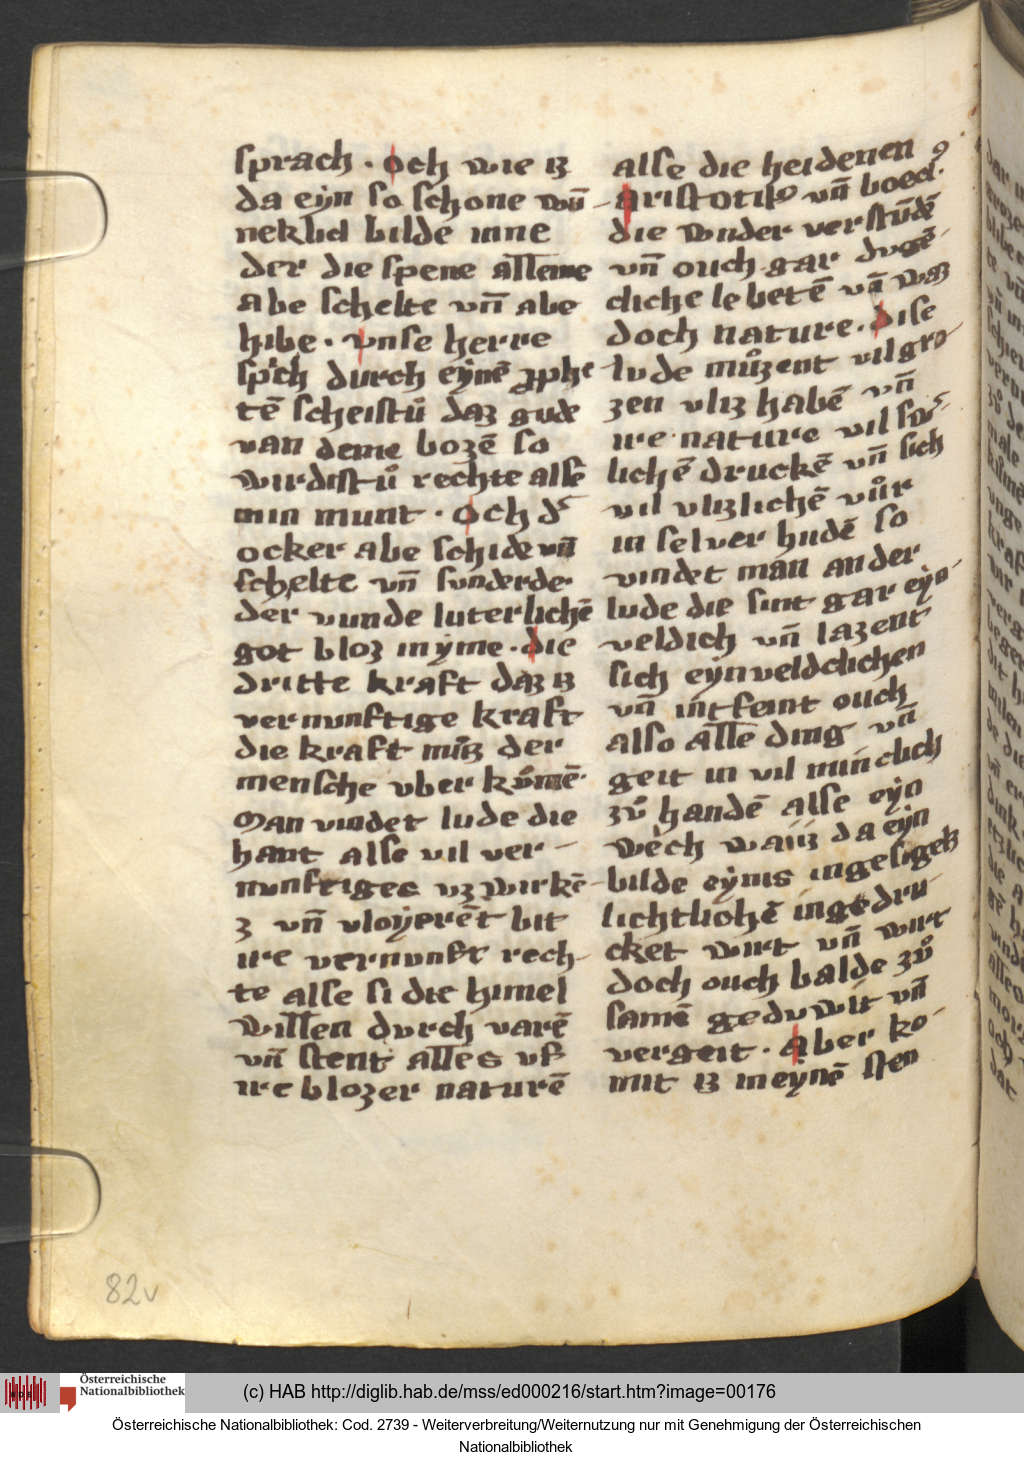 sprach · Och wie iz
da eyn so schone wū
neklich bilde inne
der die spene alleine
abe schelte vn̄ abe
hibe · vnse herre
sp͛ch durch eynē ꝓphe
tē scheistu̇ daz gude
van deme bozē so
wirdistu̇ rechte alse
min munt · Och d͛
ocker abe schide vn̄
schelte vn̄ sunderde·
der vunde luterlichē
got bloz in yme · die
dritte kraft daz iz
vernunftige kraft
die kraft muͦz der
mensche vber kv̊mē·
Man vindet lude die
hant alse vil ver-
nunftiges vz wirkē
z vn̄ vloyerēt bit
ire vernunft rech-
te alse si die himel
willen durch varē
vn̄ stent alles vf
ire blozer naturē
alse die heidenen
Aristotilꝰ vn̄ boecꝰ·
die wnder verstūdē
vn̄ ouch gar dvgē-
cliche lebetē vā wz
doch nature · Dise
lvde muͦzent vil gro-
zen vliz habē vn̄
ire nature vil s
lichē druckē vn̄ sich
vil vlizlichē vuͦr
in selver hudē so
vindet man ander
lude die sint gar eyn-
veldich vn̄ lazent
sich eynveldclichen
vn̄ intfeint ouch
also alle ding vn̄
geit in vil minclich
zuͦ handē alse eyn
wech waiz da eyn
bilde eynis ingesigelz
lichtliche ingedru-
cket wirt vn̄ wirt
doch ouch balde zuͦ
samē geduwit vn̄
vergeit · Aber ko-
mit iz in eynē sten
82v
Österreichische
Nationalbibliothek
(c) HAB http://diglib.hab.de/mss/ed000216/start.htm?image=00176
Österreichische Nationalbibliothek: Cod. 2739 - Weiterverbreitung/Weiternutzung nur mit Genehmigung der Österreichischen
Nationalbibliothek